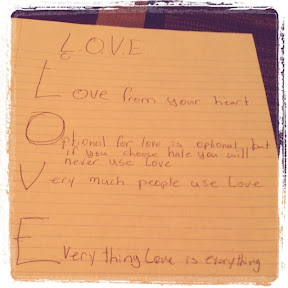 L.O.V.E
Love from your heart
Optional for love is optional but
if you choose hate you will
never use Love
Very much people use Love
Every thing Love is everything